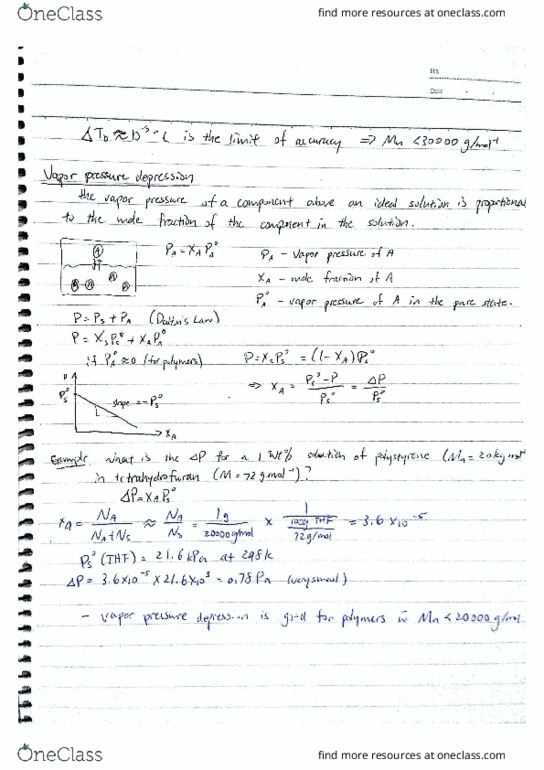 OneClass
find more resources at oneclass.com
No.
Date
ΔT_b ≈ 10⁻³ °C is the limit of accuracy ⇒ Mn < 30000 g/mol⁻¹
Vapor pressure depression
the vapor pressure of a component above an ideal solution is proportional
to the mole fraction of the component in the solution.
P_A = X_A P_A°
P_A – vapor pressure of A
X_A – mole fraction of A
P_A° – vapor pressure of A in the pure state.
P = P_S + P_A (Dalton's Law)
P = X_S P_S° + X_A P_A°
if P_A° ≈ 0 (for polymers) P = X_S P_S° = (1 - X_A) P_S°
⇒ X_A = (P_S° - P) / P_S° = ΔP / P_S°
P
P_S°
slope = -P_S°
X_A
Example what is the ΔP for a 1 wt% solution of polystyrene (Mn = 20kg mol⁻¹
in tetrahydrofuran (M = 72 g mol⁻¹)?
ΔP = X_A P_S°
X_A = N_A / (N_A + N_S) ≈ N_A / N_S = 1g / 20000g/mol × 1 / (100g THF / 72g/mol) = 3.6 × 10⁻⁵
P_S° (THF) = 21.6 kPa at 298k
ΔP = 3.6 × 10⁻⁵ × 21.6 × 10³ = 0.78 Pa (very small)
– vapor pressure depression is good for polymers w Mn < 20000 g/mol
OneClass
find more resources at oneclass.com